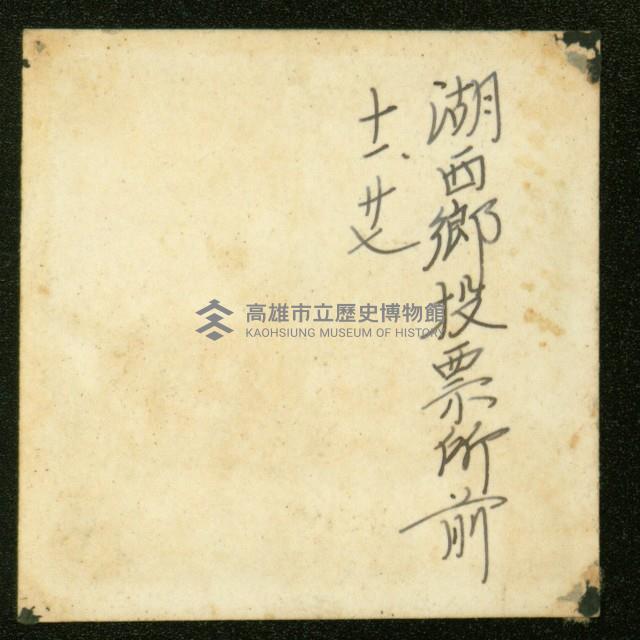 湖西鄉投票所前
十一、廿七
高雄市立歷史博物館
KAOHSIUNG MUSEUM OF HISTORY